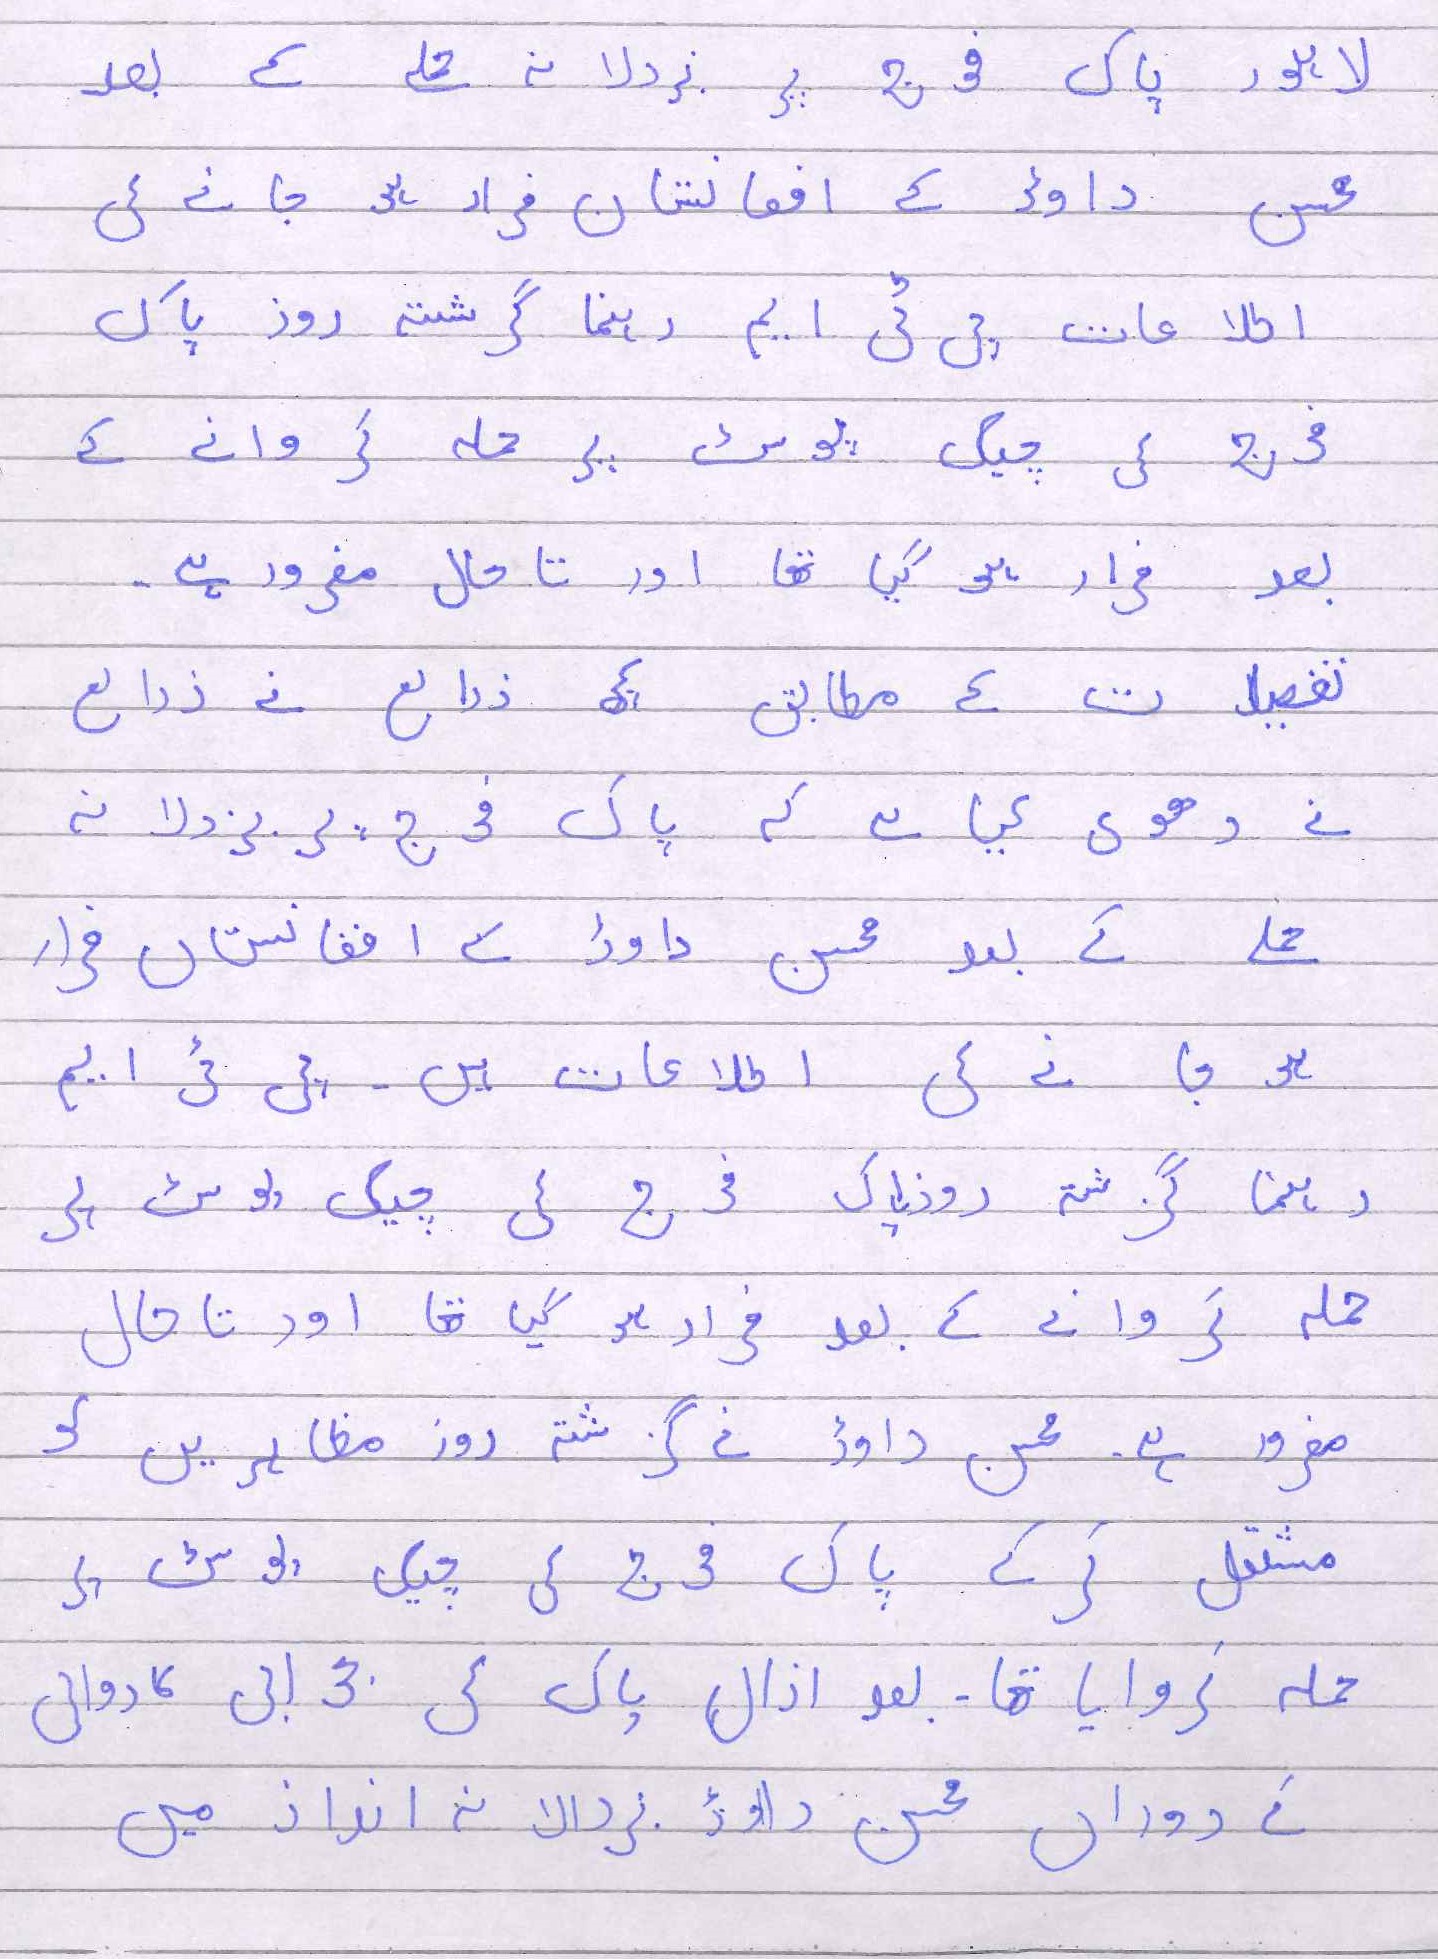 لاہور پاک فوج پر بزدلانہ حملے کے بعد
محسن داوڑ کے افغانستان فرار ہو جانے کی
اطلاعات پی ٹی ایم رہنما گزشتہ روز پاک
فوج کی چیک پوسٹ پر حملہ کروانے کے
بعد فرار ہو گیا تھا اور تاحال مفرور ہے۔
تفصیلات کے مطابق کچھ ذرائع نے ذرائع
نے دعوی کیا ہے کہ پاک فوج پر بزدلانہ
حملے کے بعد محسن داوڑ کے افغانستان فرار
ہو جانے کی اطلاعات ہیں۔ پی ٹی ایم
رہنما گزشتہ روز پاک فوج کی چیک پوسٹ پر
حملہ کروانے کے بعد فرار ہو گیا تھا اور تاحال
مفرور ہے۔ محسن داوڑ نے گزشتہ روز مظاہرین کو
مشتعل کر کے پاک فوج کی چیک پوسٹ پر
حملہ کروایا تھا۔ بعد ازاں پاک کی جوابی کاروائی
کے دوران محسن داوڑ بزدلانہ انداز میں